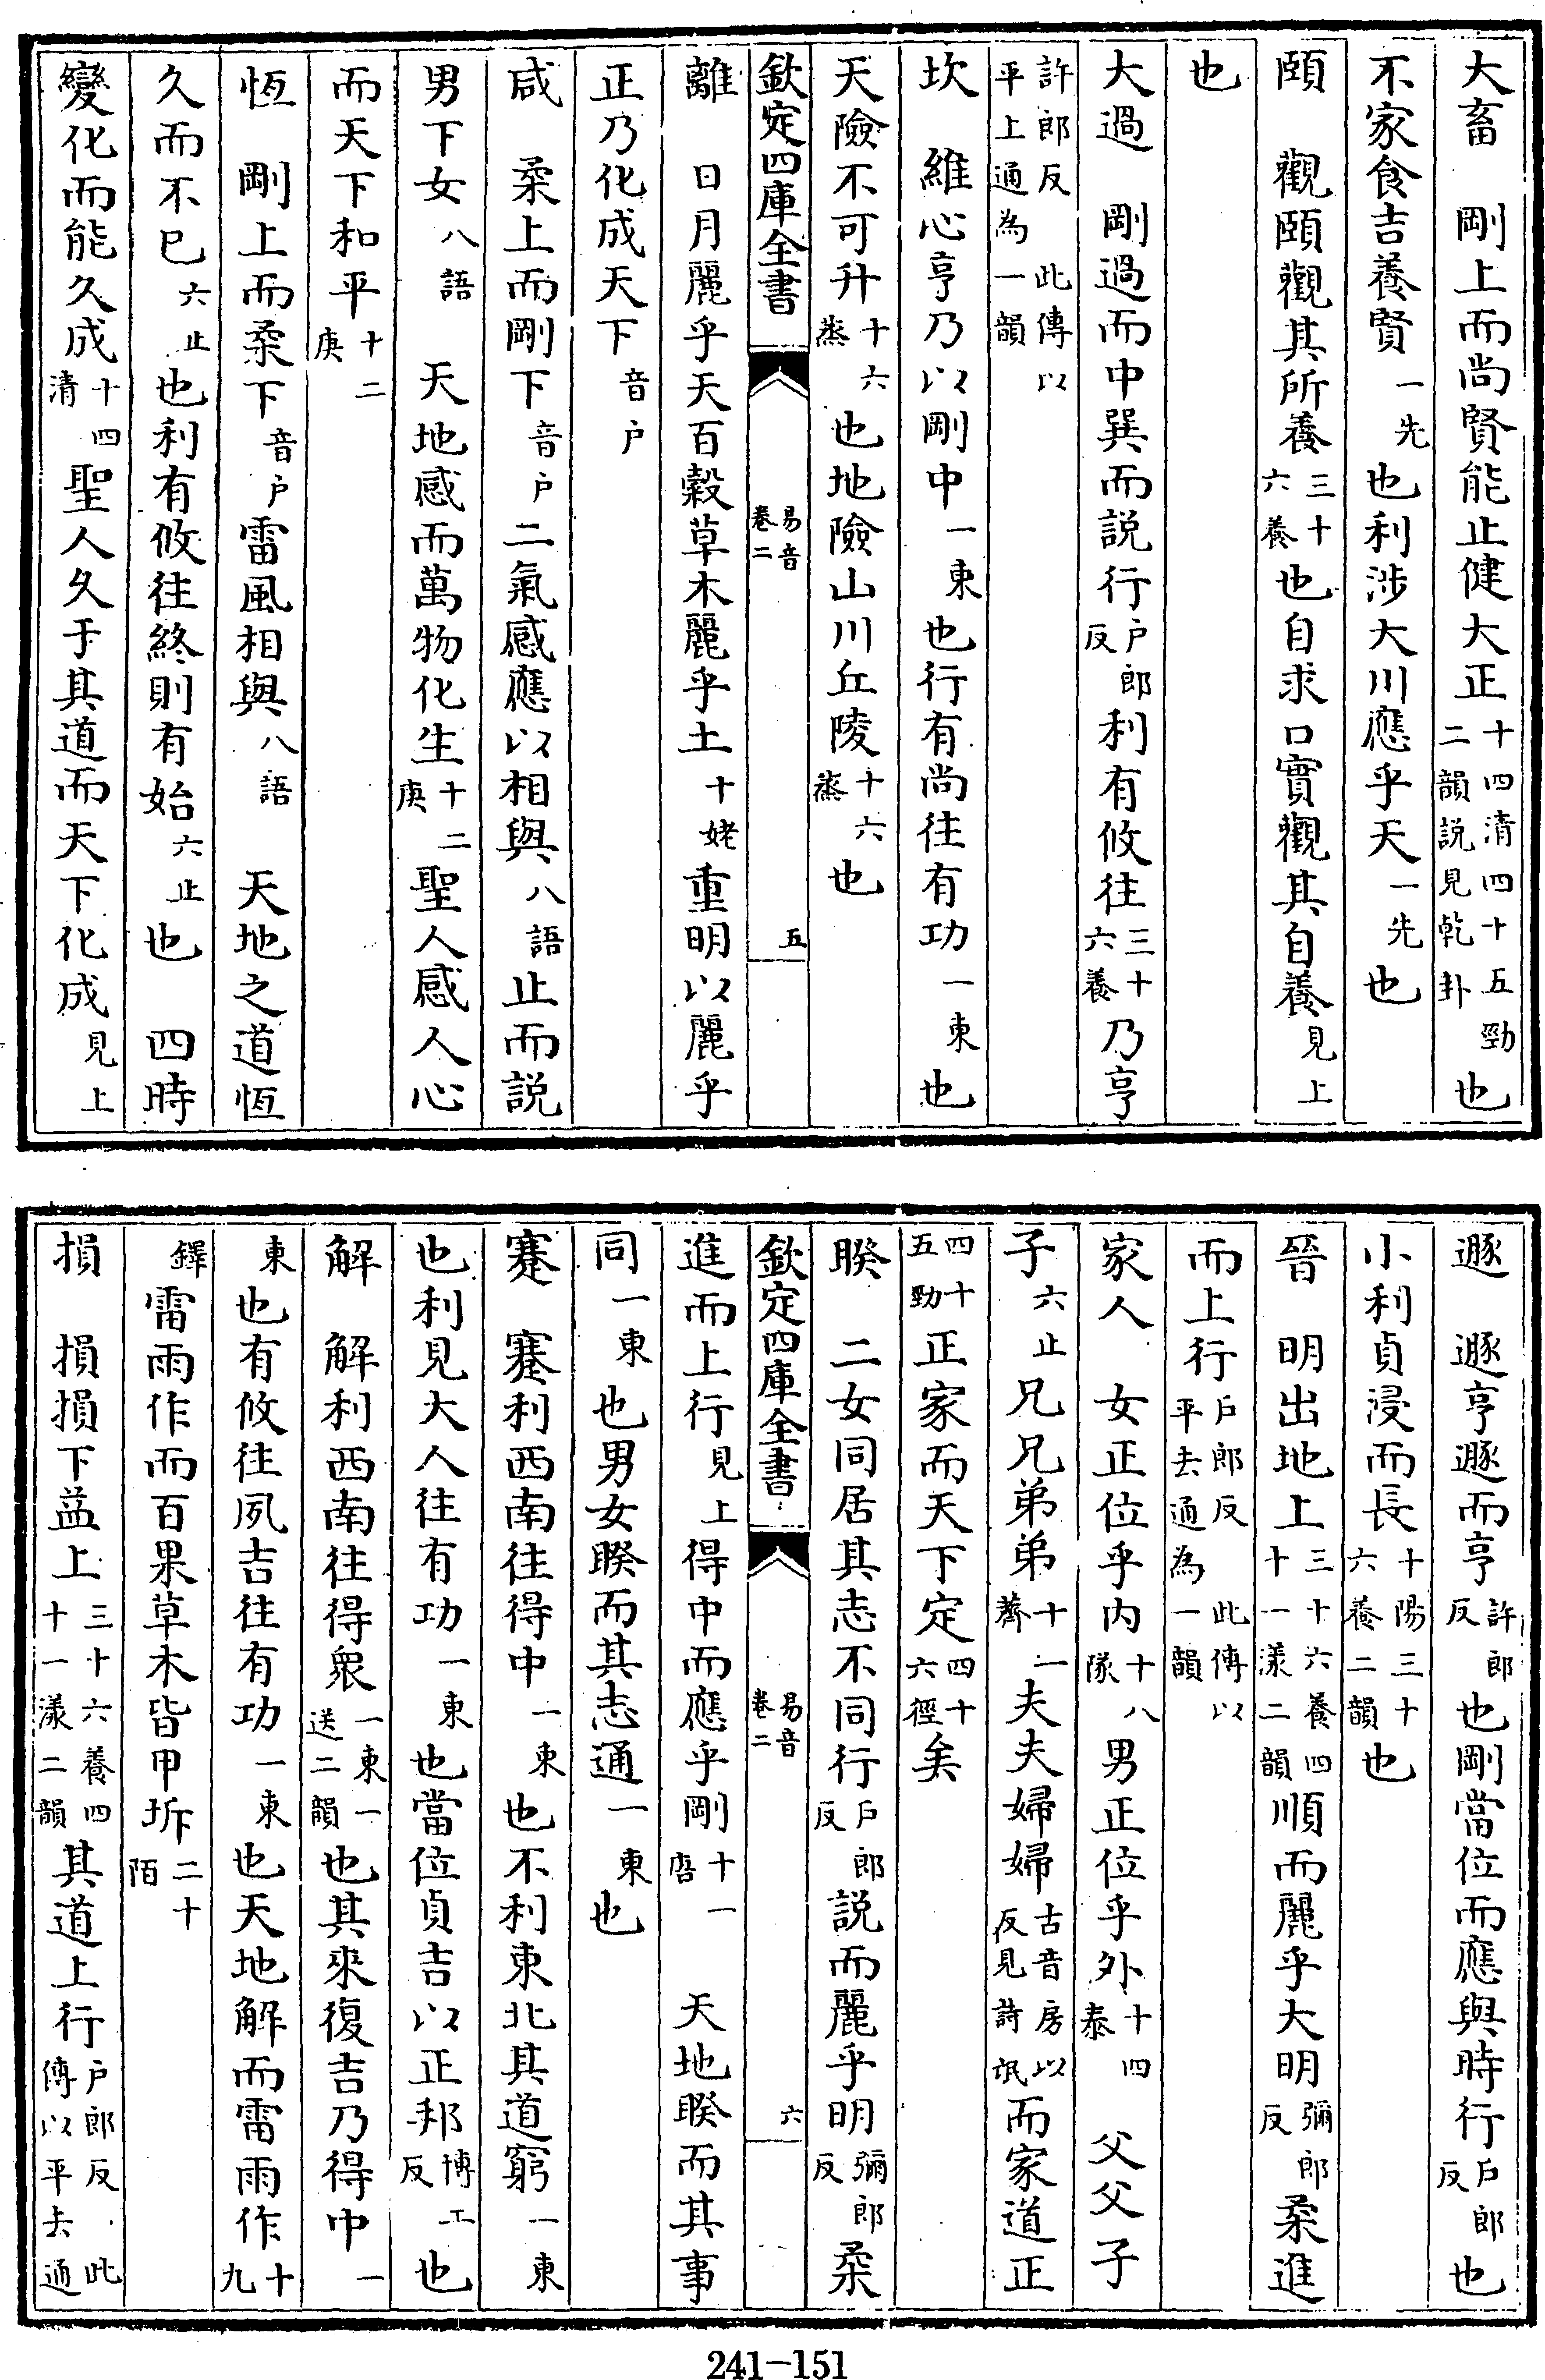 大畜　剛上而尚賢能止健大正十四清四十五勁二韻説見乾卦也
不家食吉養賢一先也利涉大川應乎天一先也
頤　觀頤觀其所養三十六養也自求口實觀其自養見上
也
大過　剛過而中巽而説行户郎反利有攸往三十六養乃亨
許郎反　此傳以平上通為一韻
坎　維心亨乃以剛中一東也行有尚往有功一東也
天險不可升十六蒸也地險山川丘陵十六蒸也
欽定四庫全書　易音卷二　五
離　日月麗乎天百穀草木麗乎土十姥重明以麗乎
正乃化成天下音户
咸　柔上而剛下音户二氣感應以相與八語止而説
男下女八語　天地感而萬物化生十二庚聖人感人心
而天下和平十二庚
恆　剛上而柔下音户雷風相與八語　天地之道恆
久而不已六止也利有攸往終則有始六止也　四時
變化而能久成十四清聖人久于其道而天下化成見上
遯　遯亨遯而亨許郎反也剛當位而應與時行户郎反也
小利貞浸而長十陽三十六養二韻也
晉　明出地上三十六養四十一漾二韻順而麗乎大明彌郎反柔進
而上行户郎反　此傳以平去通為一韻
家人　女正位乎内十八隊男正位乎外十四泰　父父子
子六止兄兄弟弟十一薺夫夫婦婦古音房以反見詩氓而家道正
四十五勁正家而天下定四十六徑矣
睽　二女同居其志不同行户郎反説而麗乎明彌郎反柔
欽定四庫全書　易音卷二　六
進而上行見上得中而應乎剛十一唐　天地睽而其事
同一東也男女睽而其志通一東也
蹇　蹇利西南往得中一東也不利東北其道窮一東
也利見大人往有功一東也當位貞吉以正邦博工反也
解　解利西南往得衆一東一送二韻也其來復吉乃得中一
東也有攸往夙吉往有功一東也天地解而雷雨作十九
鐸雷雨作而百果草木皆甲坼二十陌
損　損損下益上三十六養四十一漾二韻其道上行户郎反　此傳以平去通
241-151